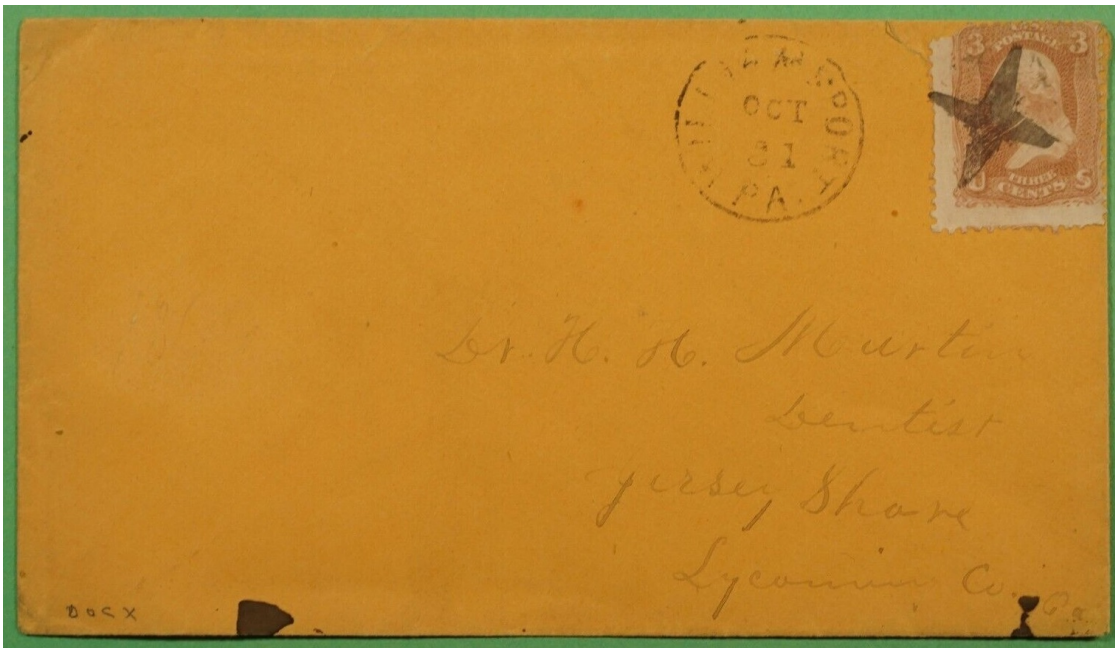 WILLIAMSPORT
OCT
31
PA.
3 POSTAGE 3
THREE
U CENTS S
Dr. H. H. Martin
Dentist
Jersey Shore
Lycoming Co. Pa
DOCX